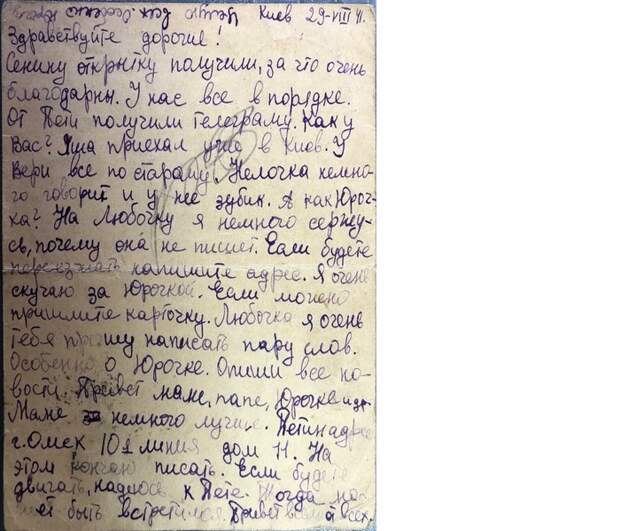 Целую всех Киев 29-VIII 41.
Здравствуйте дорогие!
Сенину открытку получили, за что очень
благодарны. У нас все в порядке.
От Пети получили телеграму. Как у
Вас? Яша приехал уже в Киев. У
Вери все по стараму. Нелочка немно-
го говорит и у нее зубик. А как Юроч-
ка? На Любочку я немного сержу-
сь, почему она не пишет. Если будете
переезжать напишите адрес. Я очень
скучаю за Юрочкой. Если можно
пришлите карточку. Любочка я очень
тебя прошу написать пару слов.
Особенно о Юрочке. Опиши все но-
вости. Привет маме, папе, Юрочке и др.
Маме немного лучше. Петин адрес
г. Омск 10я линия дом 11. На
этом кончаю писать. Если будете
двигать, надеюсь к Пете. Тогда мо-
жет быть встретимся. Привет всем от всех.